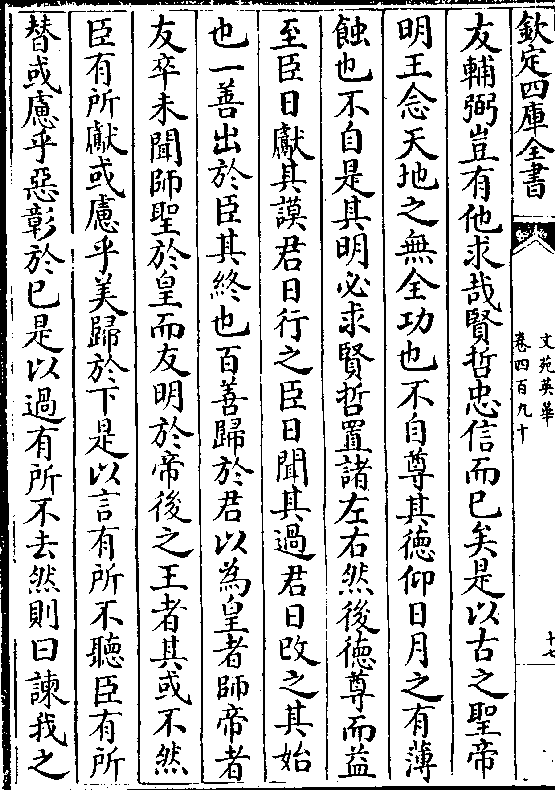 欽定四庫全書
文苑英華
卷四百九十
十七
友輔弼豈有他求哉賢哲忠信而已矣是以古之聖帝
明王念天地之無全功也不自尊其徳仰日月之有薄
蝕也不自是其明必求賢哲置諸左右然後徳尊而益
至臣日獻其謨君日行之臣日聞其過君日改之其始
也一善出於臣其終也百善歸於君以為皇者師帝者
友卒未聞師聖於皇而友明於帝後之王者其或不然
臣有所獻或慮乎美歸於下是以言有所不聽臣有所
替或慮乎惡彰於已是以過有所不去然則曰諫我之